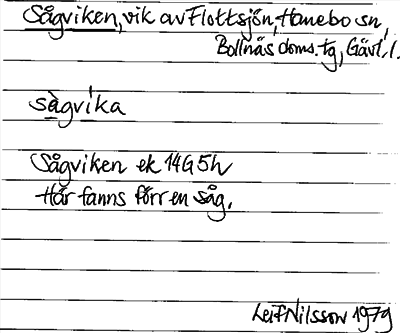 Sågviken, vik av Flottsjön, Hanebo sn,
Bollnäs doms. tg, Gävl. l.
sågvika
Sågviken ek 14G5h
Här fanns förr en såg.
Leif Nilsson 1979